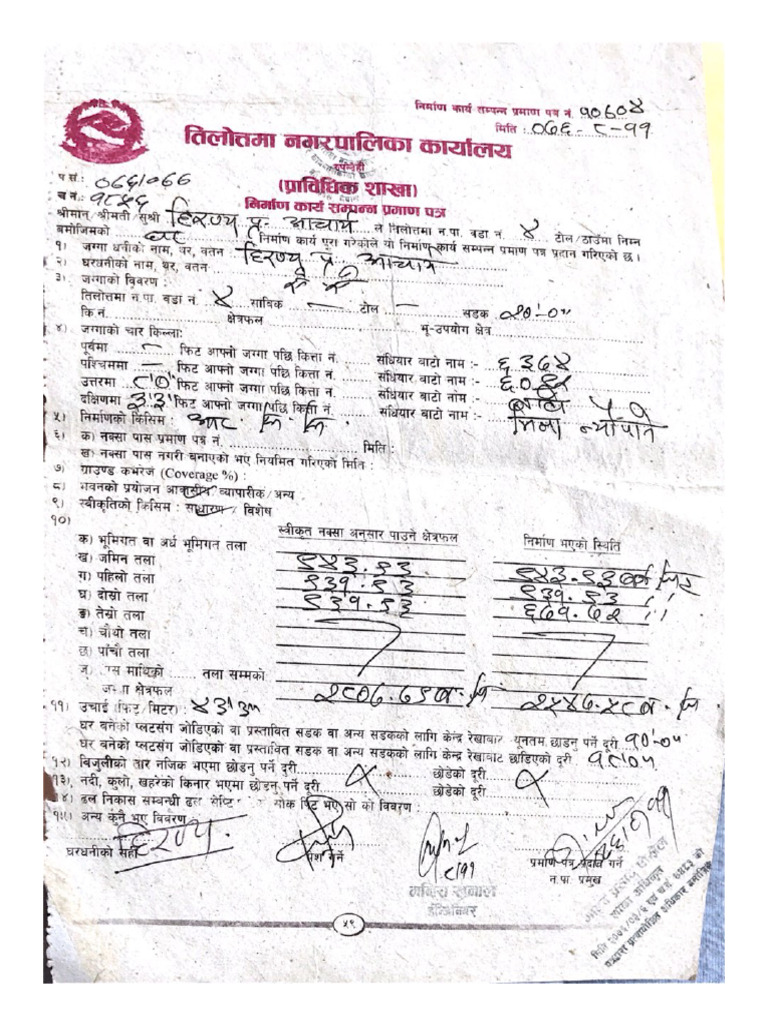 निर्माण कार्य सम्पन्न प्रमाण पत्र नं. १०६०४
मिति : ०७६-८-११
तिलोत्तमा नगरपालिका कार्यालय
रुपन्देही
(प्राविधिक शाखा)
प.सं.: ०७६/०७७
च.नं.: १८५६
निर्माण कार्य सम्पन्न प्रमाण पत्र
श्रीमान्/श्रीमती/सुश्री हिरण्य प्र. आचार्य ले तिलोत्तमा न.पा. वडा नं. ४ टोल/ठाउँमा निम्न
बमोजिमको घर निर्माण कार्य पूरा गरेकोले यो निर्माण कार्य सम्पन्न प्रमाण पत्र प्रदान गरिएको छ।
१) जग्गा धनीको नाम, थर, वतन हिरण्य प्र आचार्य
२) घरधनीको नाम, थर, वतन ऐ ऐ
३) जग्गाको विवरण :
तिलोत्तमा न.पा. वडा नं. ४ साविक – टोल – सडक
कि.नं. क्षेत्रफल भू-उपयोग क्षेत्र
४) जग्गाको चार किल्ला:
पूर्वमा – फिट आफ्नो जग्गा पछि कित्ता नं. संधियार बाटो नाम :- ६३७४
पश्चिममा – फिट आफ्नो जग्गा पछि कित्ता नं. संधियार बाटो नाम :-
उत्तरमा ८'०" फिट आफ्नो जग्गा पछि कित्ता नं. संधियार बाटो नाम :- बाटो
दक्षिणमा ३'३" फिट आफ्नो जग्गा पछि कित्ता नं. संधियार बाटो नाम :-
५) निर्माणको किसिम : आर. सि. सि.
६) क) नक्सा पास प्रमाण पत्र नं. मिति :
ख) नक्सा पास नगरी बनाएको भए नियमित गरिएको मिति :
७) ग्राउण्ड कभरेज (Coverage %) :
८) भवनको प्रयोजन आवासीय/व्यापारीक/अन्य
९) स्वीकृतिको किसिम : साधारण / विशेष
१०) स्वीकृत नक्सा अनुसार पाउने क्षेत्रफल निर्माण भएको स्थिति
क) भूमिगत वा अर्ध भूमिगत तला
ख) जमिन तला ९४३.९३ ९४३.९३ वर्ग फिट
ग) पहिलो तला ९३१.९३ ९३१.९३ ''
घ) दोस्रो तला ९३१.९३ ६७१.७२ ''
ङ) तेस्रो तला
च) चौथो तला
छ) पाँचौ तला
ज) माथिको तला सम्मको
जम्मा क्षेत्रफल २८०७.७९ व. फि २५४७.५८ व. फि
११) उचाई (फिट/मिटर) : ४३'३"
घर बनेको प्लटसंग जोडिएको वा प्रस्तावित सडक वा अन्य सडकको लागि केन्द्र रेखाबाट न्यूनतम छाड्नु पर्ने दुरी १०'-०"
घर बनेको प्लटसंग जोडिएको वा प्रस्तावित सडक वा अन्य सडकको लागि केन्द्र रेखाबाट छाडिएको दूरी १८'०"
१२) बिजुलीको तार नजिक भएमा छोड्नु पर्ने दुरी छोडेको दूरी
१३) नदी, कुलो, खहरेको किनार भएमा छोड्नु पर्ने दूरी छोडेको दूरी
१४) ढल निकास सम्बन्धी
१५) अन्य कुनै भए विवरण
हिरण्य
घरधनीको सही पेश गर्ने प्रमाण पत्र प्रदान गर्ने
न.पा. प्रमुख
इन्जिनियर
५९